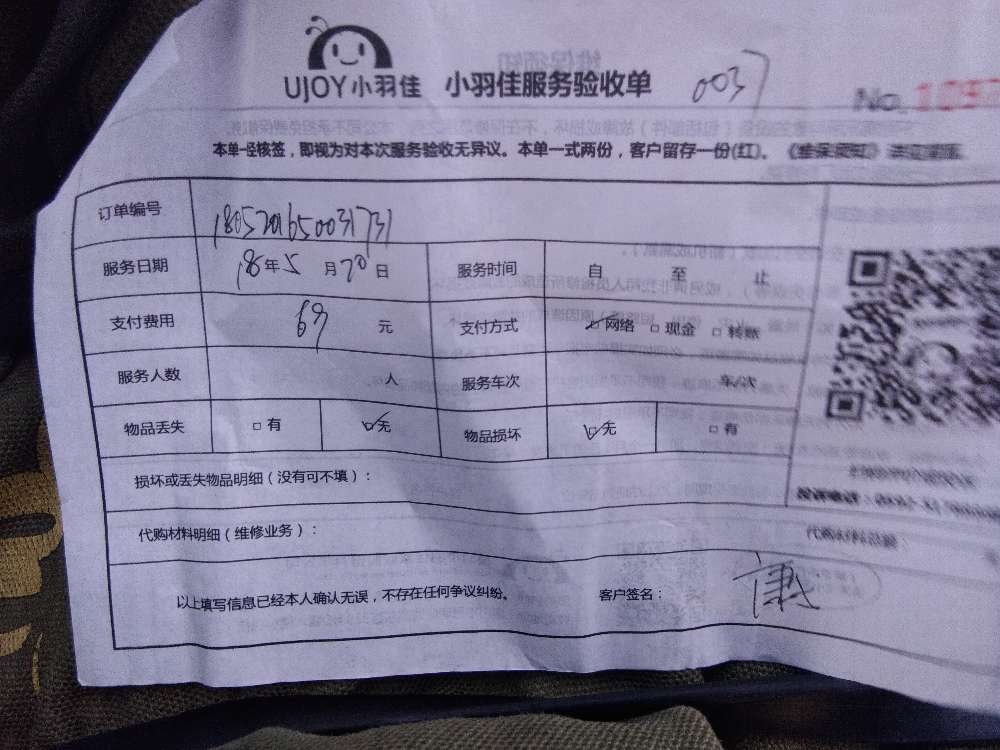 UJOY小羽佳 小羽佳服务验收单 0037
No.
本单一经核签，即视为对本次服务验收无异议。本单一式两份，客户留存一份(红)。《维保须知》
订单编号 1805201650031731
服务日期 18年5月20日 服务时间 自 至 止
支付费用 69 元 支付方式 ☑网络 □现金 □转账
服务人数 人 服务车次 车/次
物品丢失 □有 ☑无 物品损坏 ☑无 □有
损坏或丢失物品明细（没有可不填）：
代购材料明细（维修业务）： 代购材料总额：
以上填写信息已经本人确认无误，不存在任何争议纠纷。 客户签名： 康